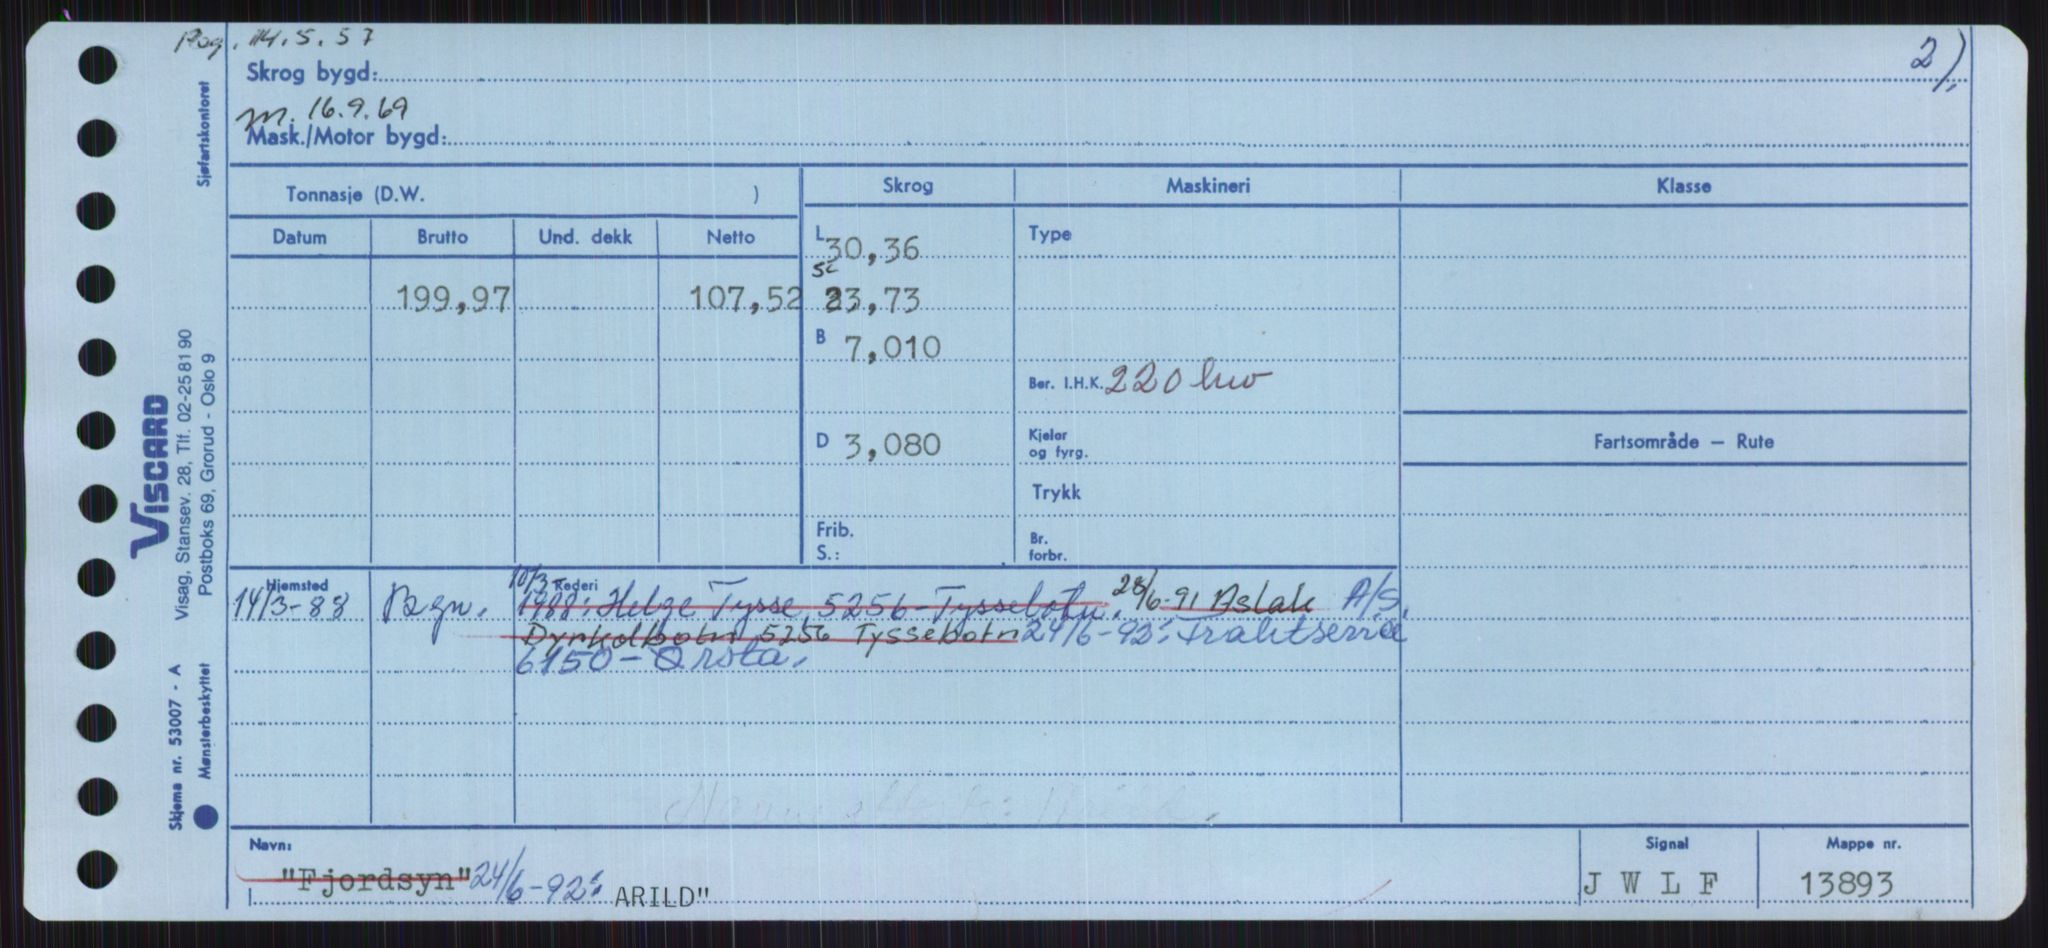 Reg. 14.5.57
2)
Skrog bygd:
m. 16.9.69
Mask./Motor bygd:
Tonnasje (D.W. )
Skrog
Maskineri
Klasse
Datum
Brutto
Und. dekk
Netto
L 30,36
Type
199,97
107,52
23,73
B 7,010
Ber. I.H.K. 220
D 3,080
Kjeler
og fyrg.
Fartsområde — Rute
Trykk
Frib.
S.:
Br.
forbr.
Hjemsted
Rederi
14/3-88 Bgn. 10/3 1988: Helge Tysse, 5256-Tyssebotn. 28/6-91 Aslak A/S.
Dyrkolbotn 5256 Tyssebotn 24/6-92: Fraktservice
6150-Ørsta.
Navn:
Signal
Mappe nr.
"Fjordsyn" 24/6-92: ARILD"
J W L F
13893
Sjøfartskontoret
VISCARD
Visag, Stansev. 28, Tlf. 02-25 81 90
Postboks 69, Grorud - Oslo 9
Skjema nr. 53007 - A
Mønsterbeskyttet